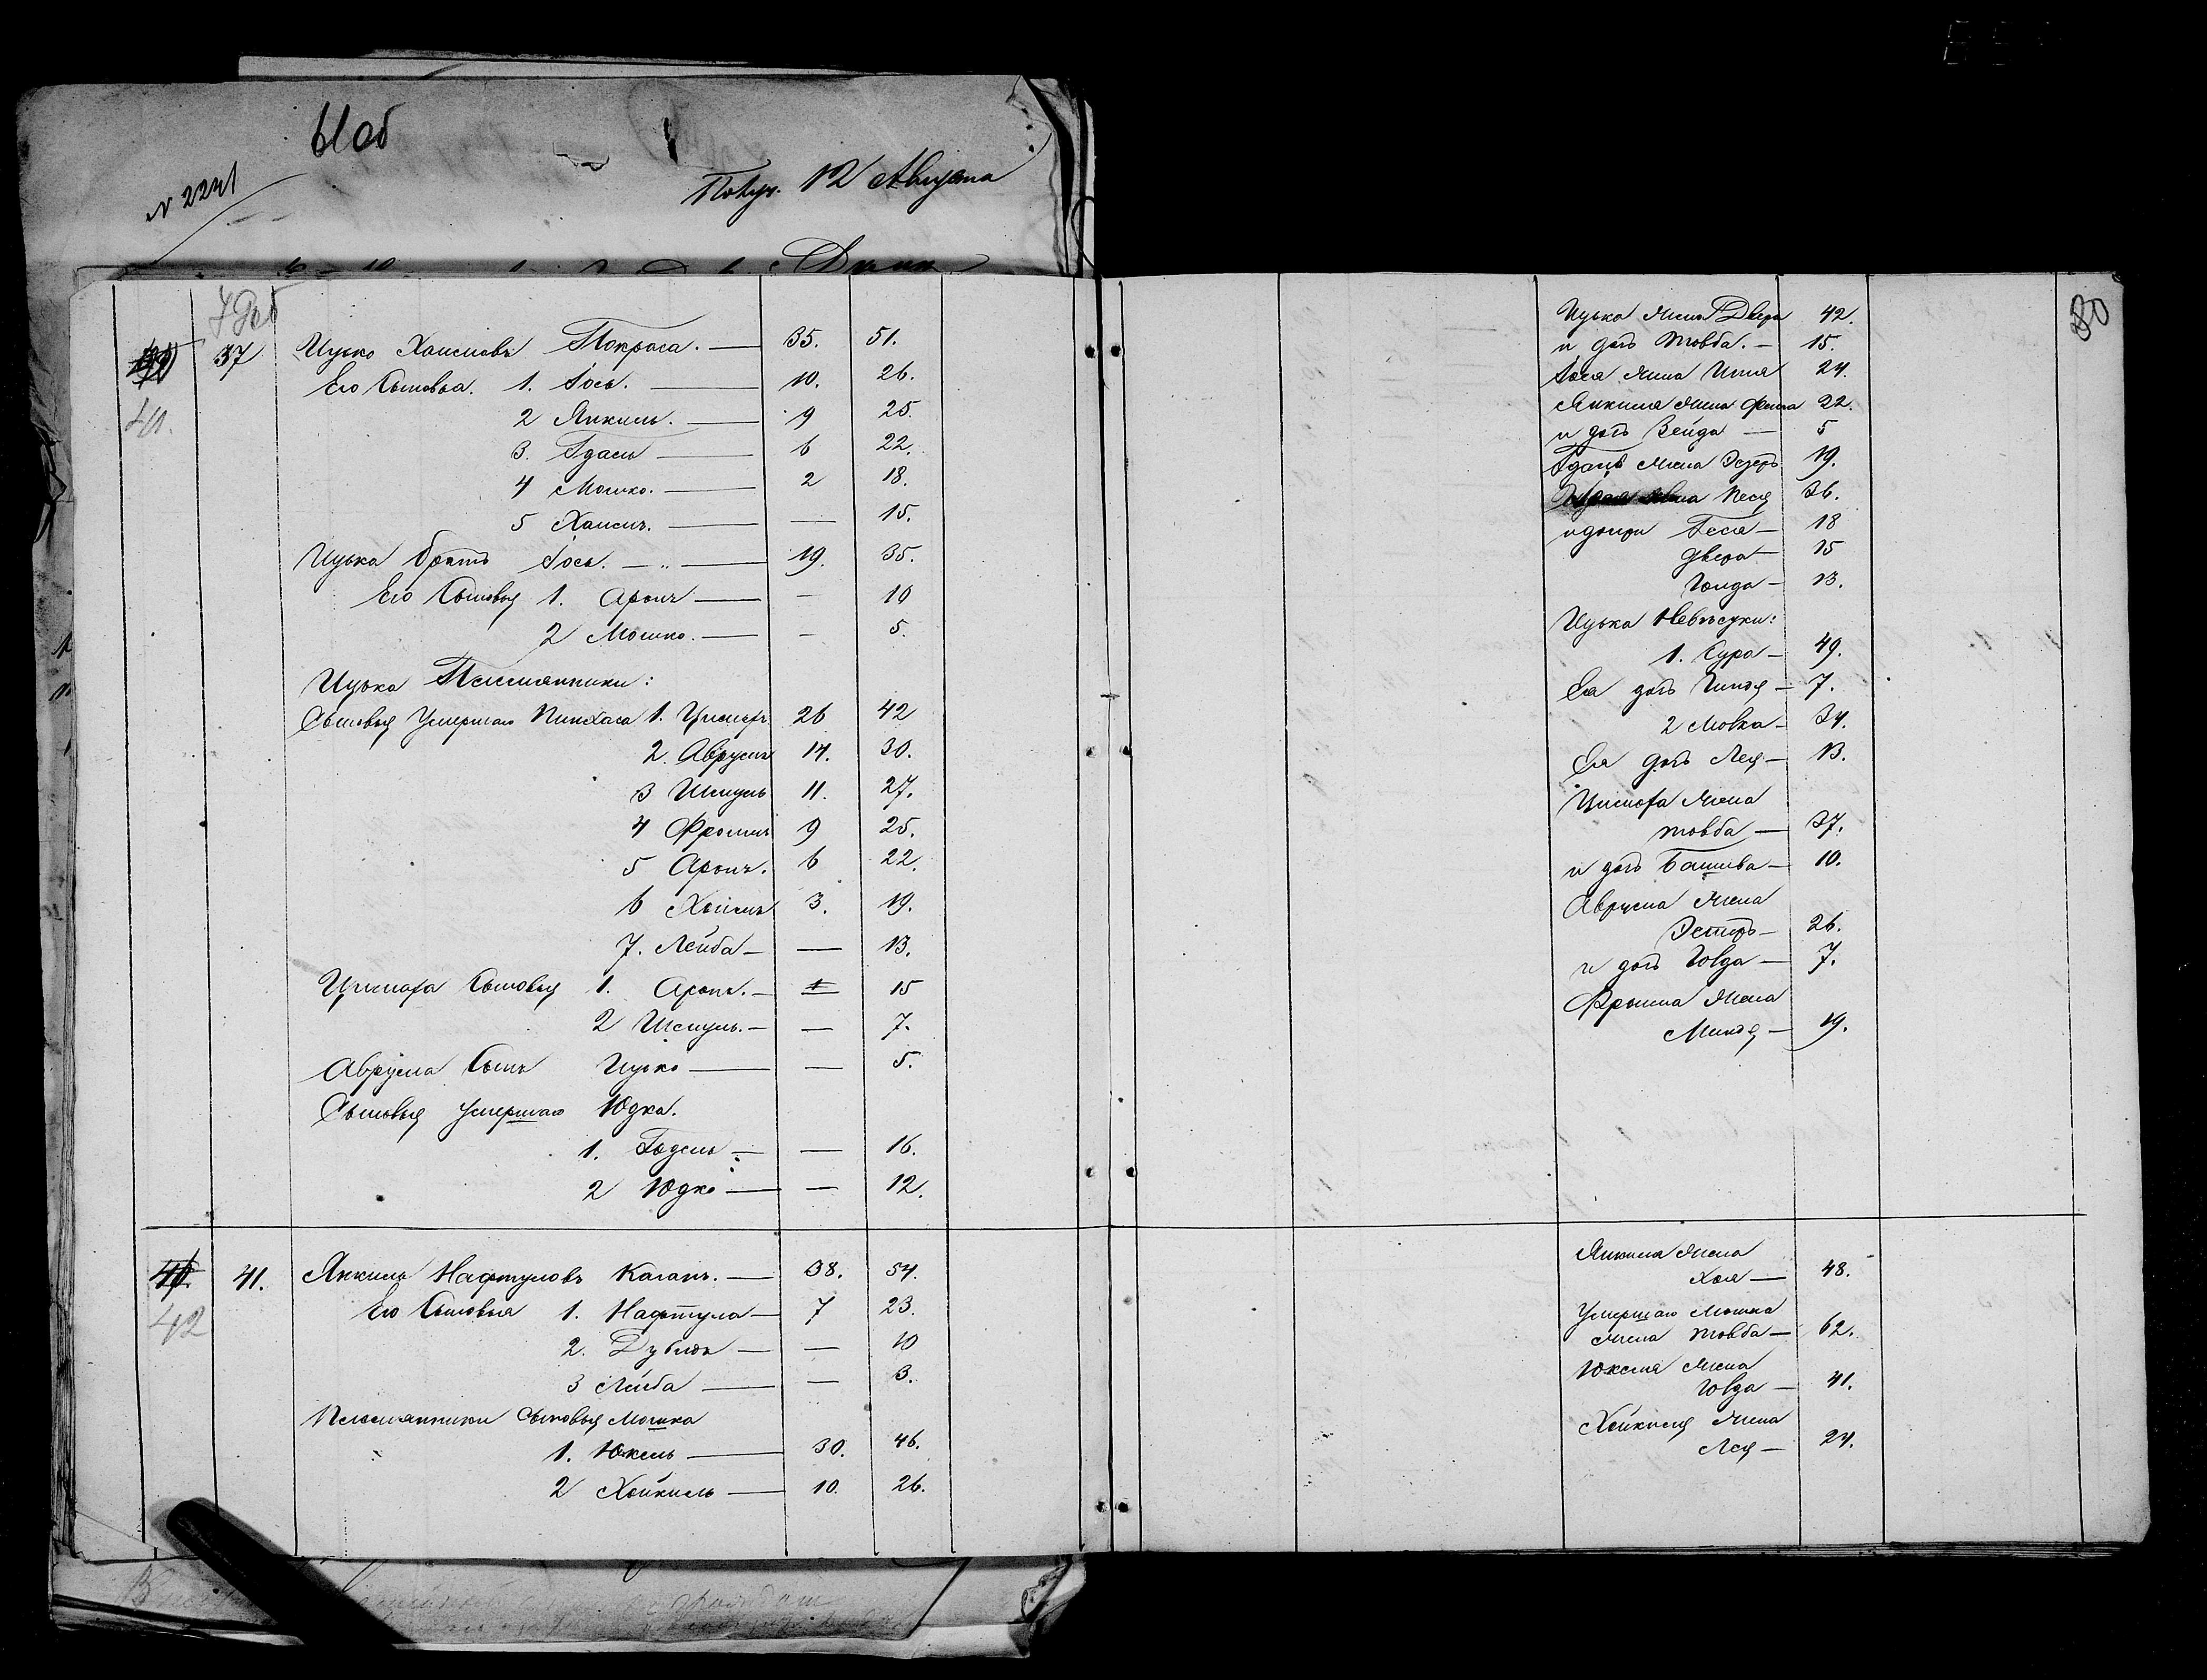 61об
N 2241
Получ. 12 Августа
80
37 Ицько Хаимовъ Покраса. — 35. 51.
41.
Его Сыновья. 1. Іось. — 10. 26.
2 Янкиль. — 9 25.
3. Гдаль — 6 22.
4 Мошко. — 2 18.
5 Хаимъ. — — 15.
Ицька братъ Іось. — „ — 19. 35.
Его Сыновья 1. Аронъ — — 10
2 Мошко. — — 5.
Ицька Племянники:
Сыновья Умершаго Пинхаса 1. 26 42
2. Аврумъ 14. 30.
3 Шмуль 11. 27.
4 Фроимъ 9 25.
5 Аронъ. 6 22.
6 Хаимъ 3. 19.
7. Лейба — — 13.
Сыновья 1. Аронъ. — 15
2 Шмуль. — — 7.
Аврума Сынъ Ицько — — 5.
Сыновья умершаго Юдка.
1. — — 16.
2 Юдко — — 12.
41. Янкиль Нафтуловъ Каганъ. — 38. 54.
42
Его Сыновья 1. Нафтула — 7 23.
2. — — 10
3 Лейба — — 3.
Племянники Сыновья Мошка
1. Юкель — 30. 46.
2 Хайкиль — 10. 26.
Ицька жена Двера 42.
и дочь Товба. — 15.
Іося жена 24.
Янкиля жена 22.
и дочь Зейда — 5
Гдаля жена Эстеръ 19.
жена Песя 36.
и дочери Геся — 18
Двера — 15
Голда — 13.
Ицька Невѣстки:
1. Сура — 49.
Ея дочь Гиндя — 7.
2 Мовка — 34.
Ея дочь Лея — 13.
жена
Товба — 37.
и дочь Башива — 10.
Аврума жена
Эстеръ — 26.
и дочь Говда — 7.
Фроима жена
Миндя — 19.
Янкиля жена
Хая — 48.
Умершаго Мошка
жена Товба — 62.
Юкеля жена
Говда — 41.
Хайкиля жена
Лея — 24.